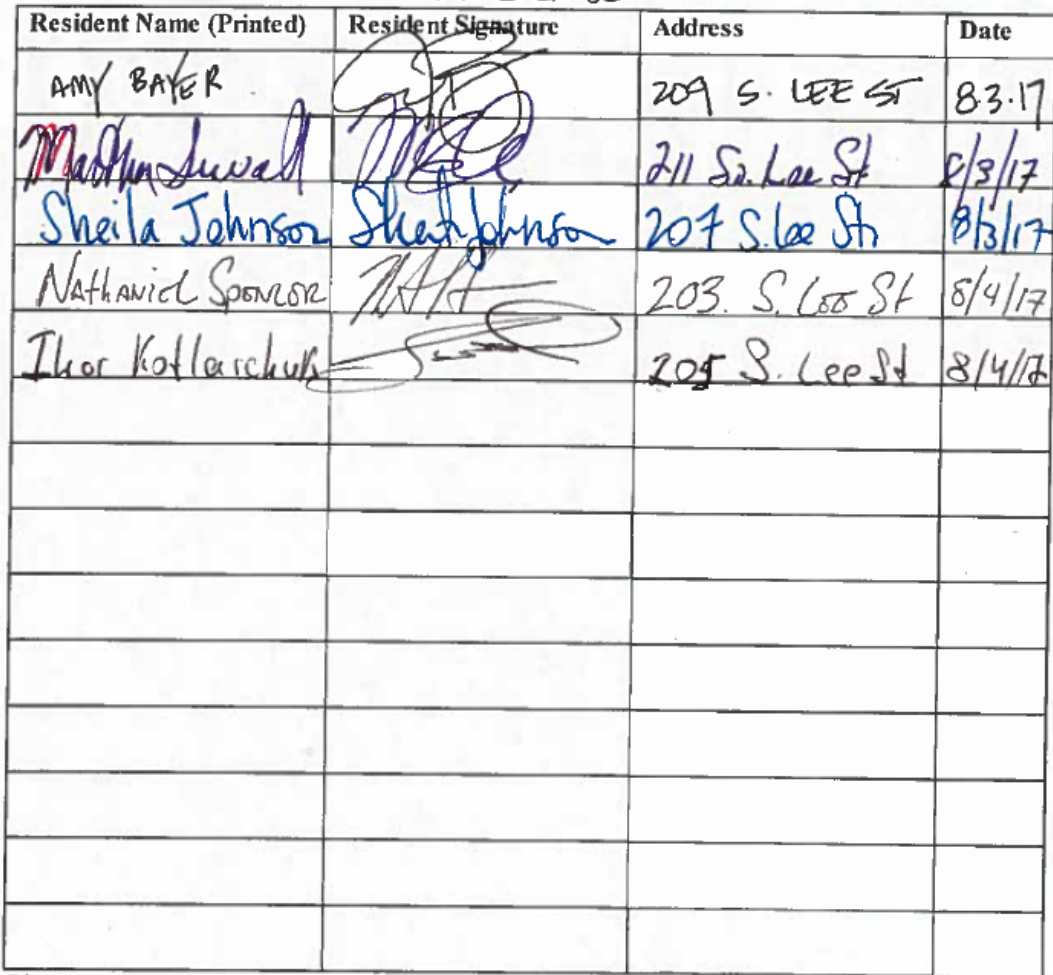 Resident Name (Printed) Resident Signature Address Date
AMY BAYER 209 S. LEE ST 8.3.17
211 So. Lee St 8/3/17
Sheila Johnson Sheila Johnson 207 S. Lee St 8/3/17
NAthANiEL 203. S. LEE St 8/4/17
Ihor Kotlarchuk 205 S. Lee St 8/4/17